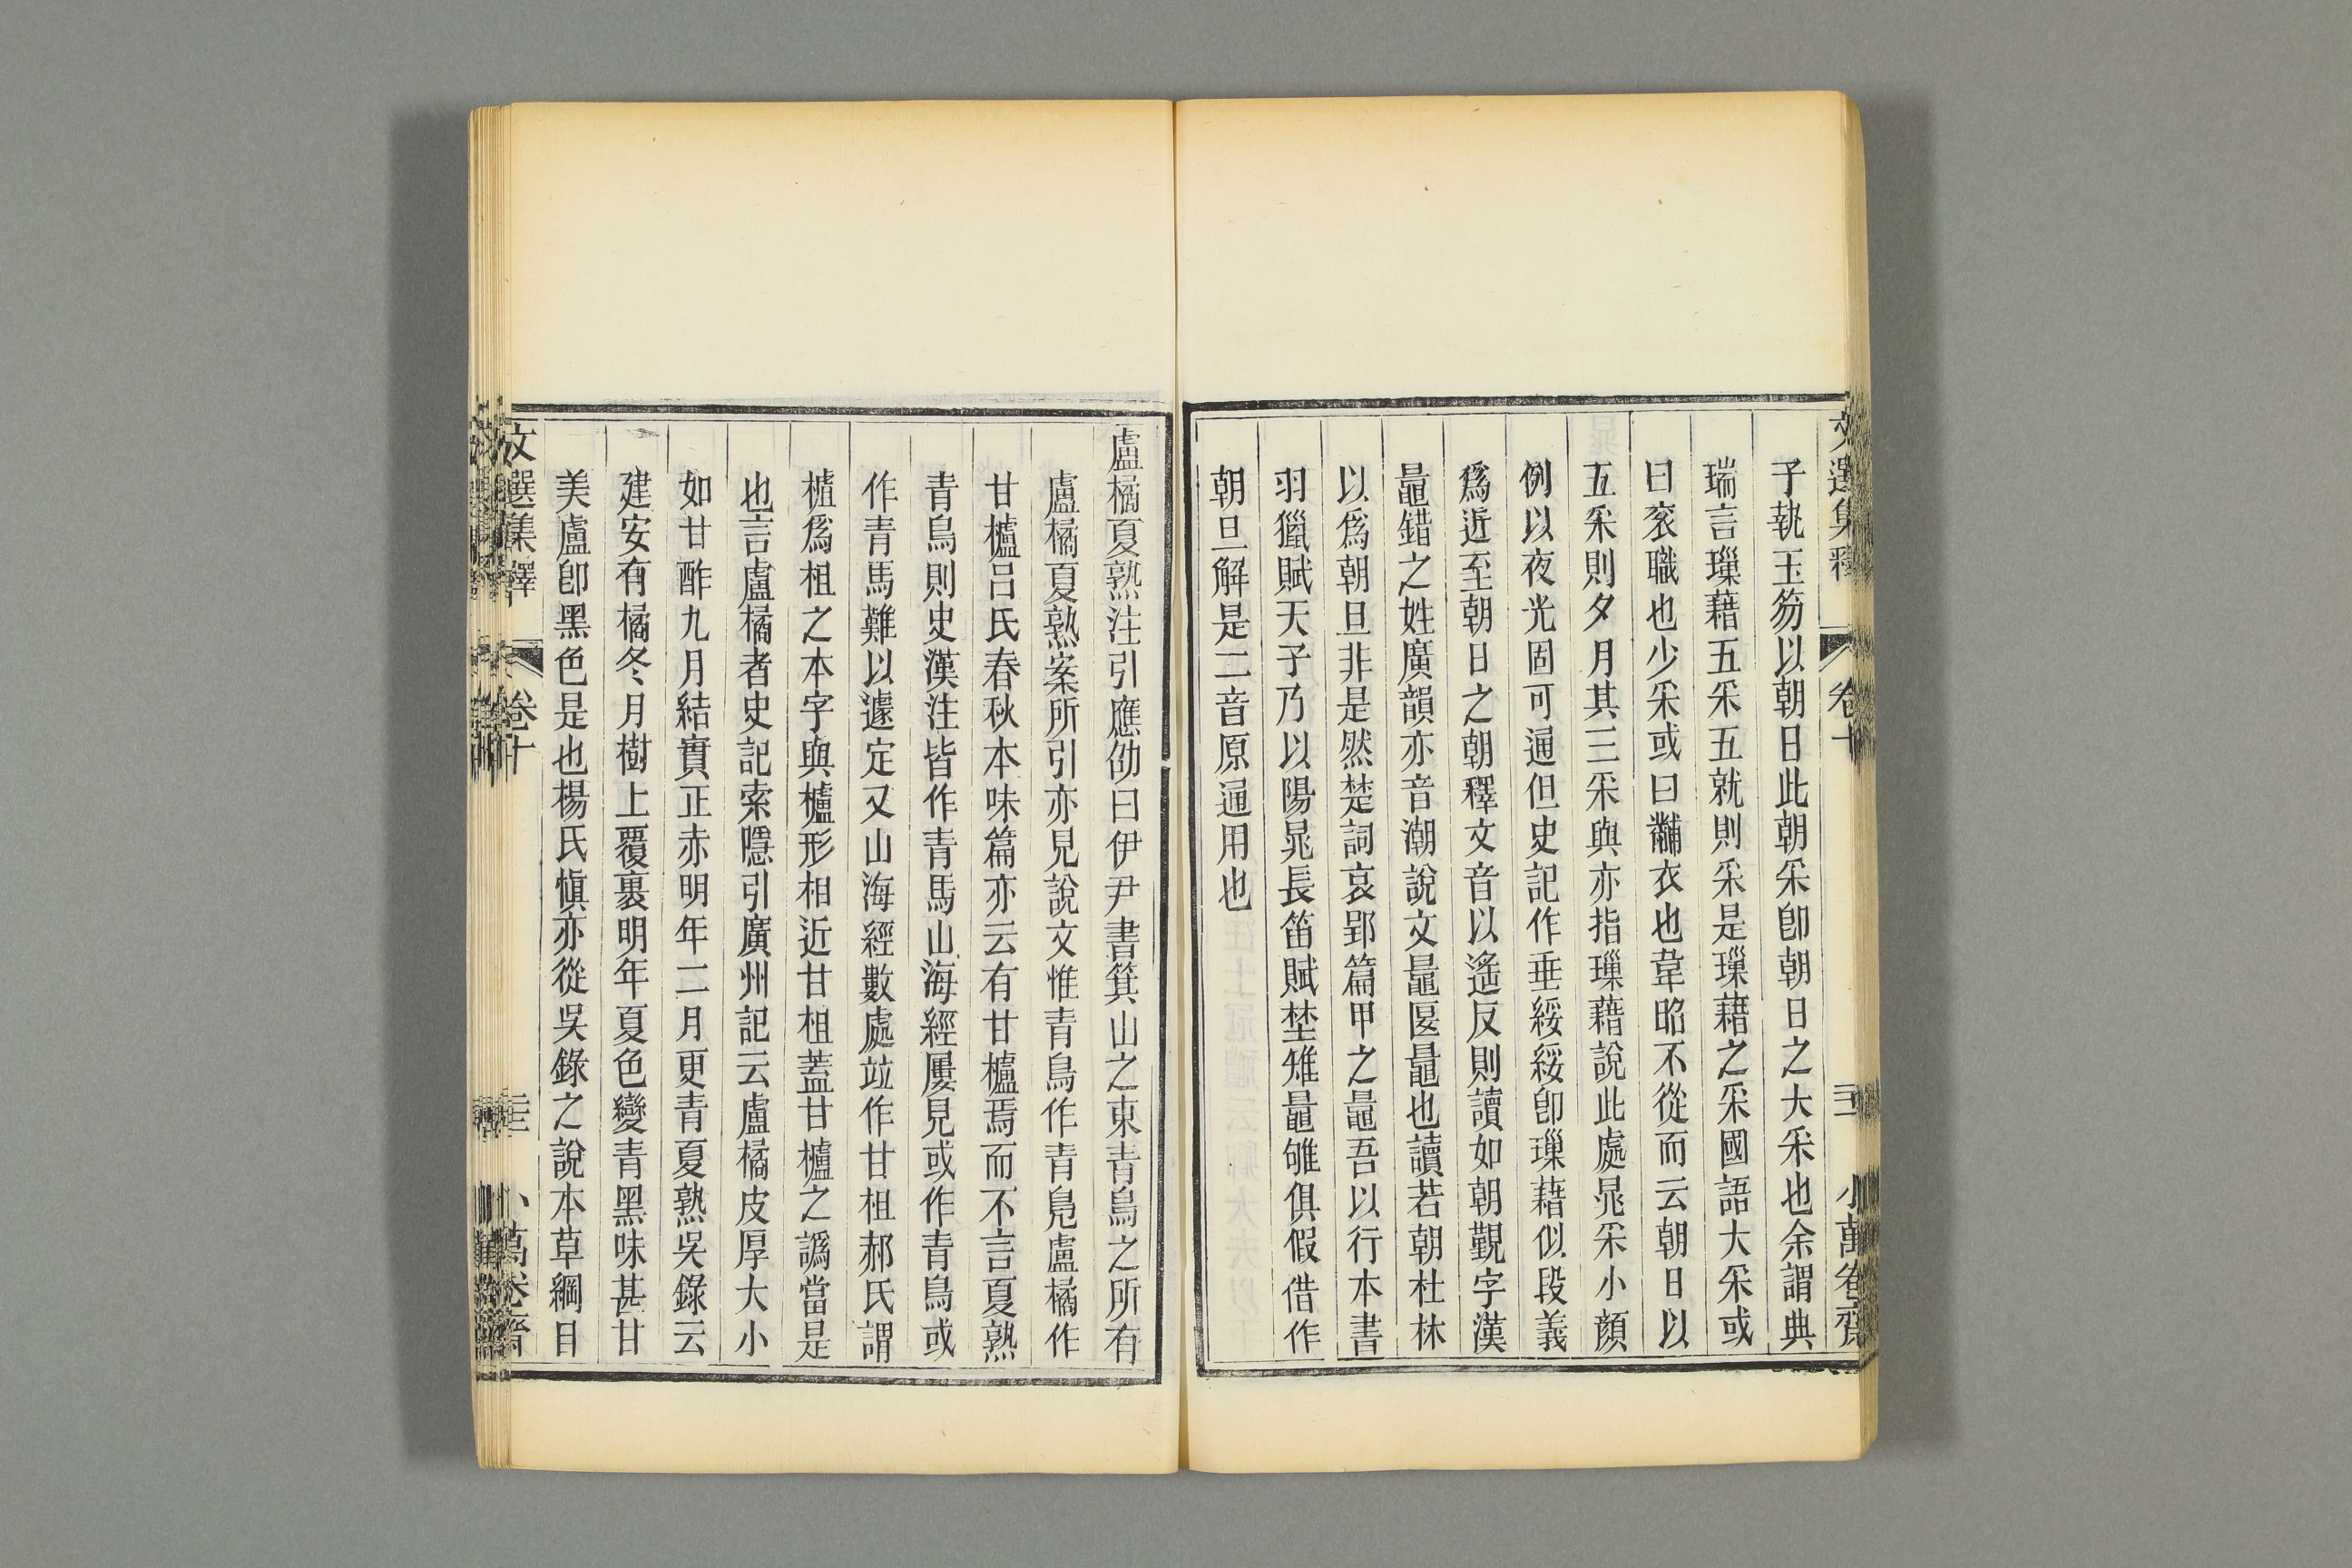 文選集釋 卷十 小萬卷齋
子執玉笏以朝日此朝采卽朝日之大采也余謂典
瑞言璅藉五采五就則采是璅藉之采國語大采或
曰袞職也少采或曰黼衣也韋昭不從而云朝日以
五采則夕月其三采與亦指璅藉說此處晁采小顏
例以夜光固可通但史記作垂綏綏卽璅藉似段義
爲近至朝日之朝釋文音以遙反則讀如朝覲字漢
鼂錯之姓廣韻亦音潮說文鼂匽鼂也讀若朝杜林
以爲朝旦非是然楚詞哀郢篇甲之鼂吾以行本書
羽獵賦天子乃以陽晁長笛賦埜雉鼂雊俱假借作
朝旦解是二音原通用也
盧橘夏熟注引應劭曰伊尹書箕山之東青鳥之所有
盧橘夏熟案所引亦見說文惟青鳥作青鳧盧橘作
甘櫨呂氏春秋本味篇亦云有甘櫨焉而不言夏熟
青鳥則史漢注皆作青馬山海經屢見或作青鳥或
作青馬難以遽定又山海經數處竝作甘柤郝氏謂
樝爲柤之本字與櫨形相近甘柤蓋甘櫨之譌當是
也言盧橘者史記索隱引廣州記云盧橘皮厚大小
如甘酢九月結實正赤明年二月更青夏熟吳錄云
建安有橘冬月樹上覆裹明年夏色變青黑味甚甘
美盧卽黑色是也楊氏愼亦從吳錄之說本草綱目
文選集釋 卷十 小萬卷齋